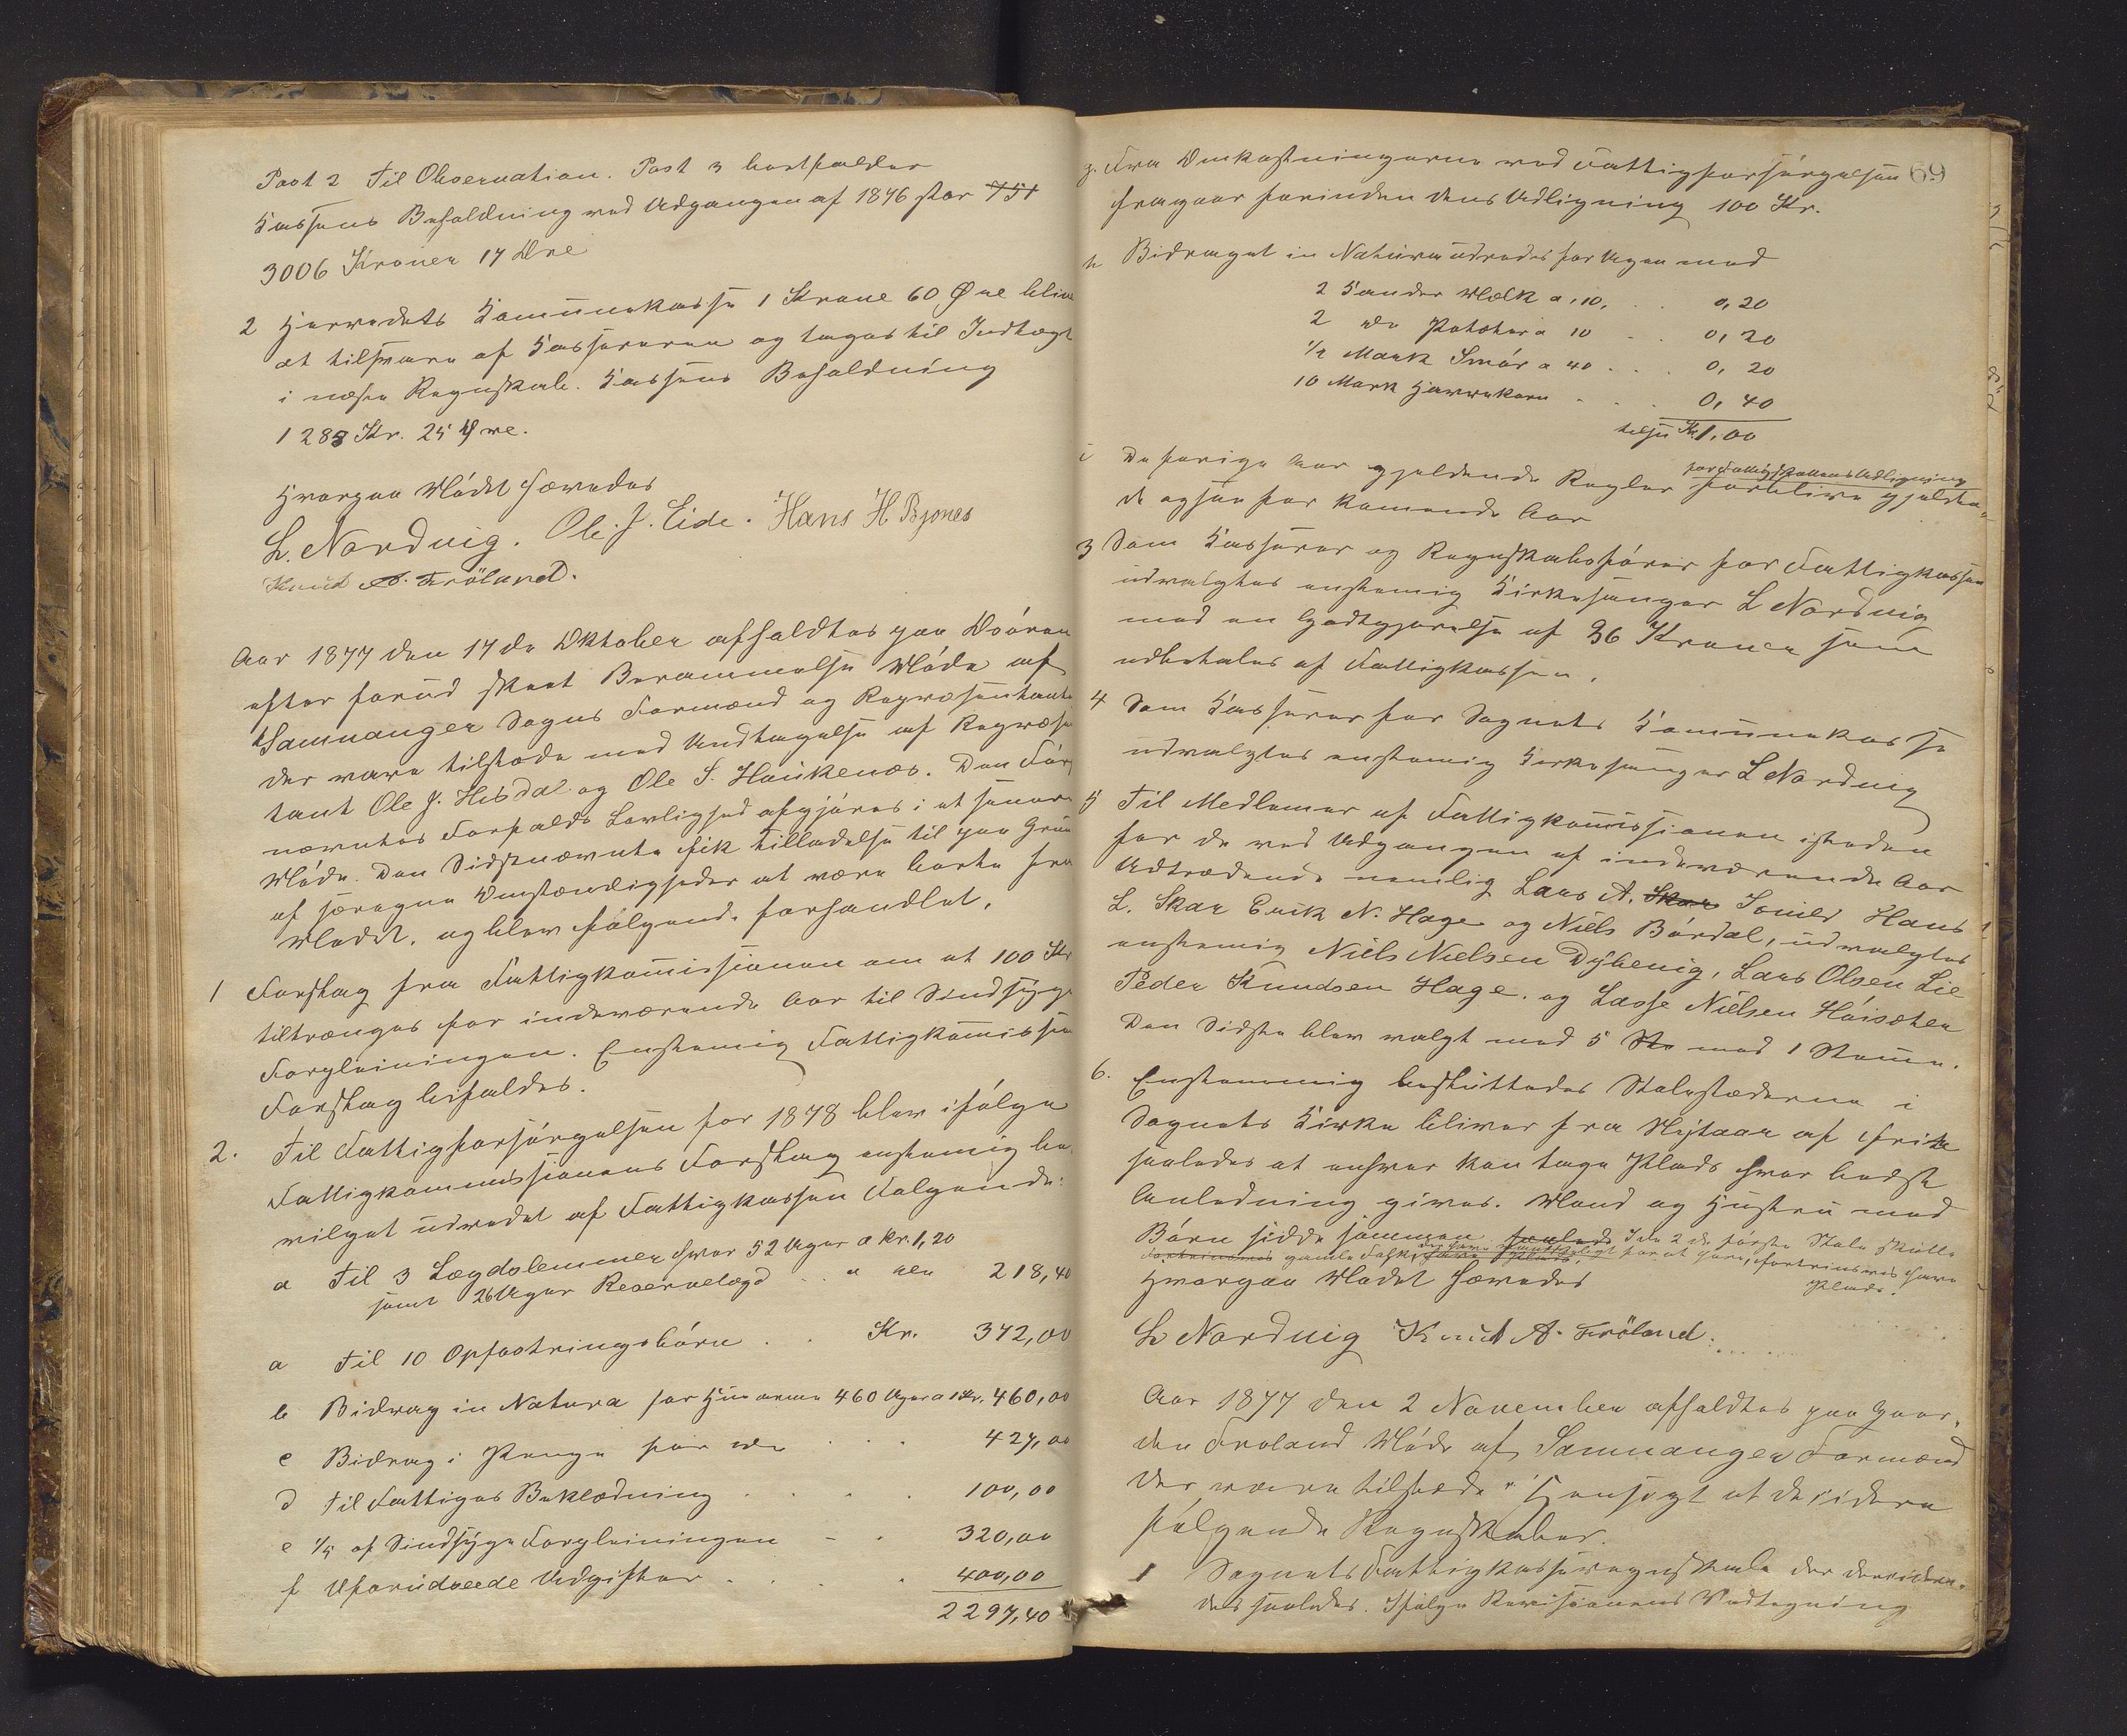 Post 2 Til Observation. Post 3 bortfalder
Kassens Beholdning ved Udgangen af 1876 stor 751
3006 Kroner 17 Øre
2 Herredets Komunekasse 1 Krone 60 Øre bliver
at tilsvare af Kassereren og tages til Indtægt
i næste Regnskab. Kassens Beholdning
1283 Kr. 25 Øre.
Hvorpaa Mødet hævedes
L. Nordvig. Ole J. Eide. Hans H Bjønes
Knud A. Frøland.
Aar 1877 den 17de Oktober afholdtes paa
efter forud skeet Berammelse Møde af
Samnanger Sogns Formænd og Repræsentanter
der vare tilstæde med Undtagelse af Repræsen
tant Ole J. Hisdal og Ole S. Haukenæs. Den Først
nævntes Forfalds Lovlighed afgjøres i et senere
Møde. Den Sidstnævnte fik Tilladelse til paa Grund
af særegne Omstændigheder at være borte fra
Mødet. og blev følgende forhandlet.
1 Forslag fra Fattigkomissionen om at 100 Kr
tiltrænges for indeværende Aar til Sindsyge
Forpleiningen. Enstemig Fattigkomissionens
Forslag bifaldes.
2. Til Fattigforsørgelsen for 1878 blev ifølge
Fattigkommissionens Forslag enstemig be
vilget udredet af Fattigkassen Følgende:
a Til 3 Lægdslemmer hver 52 Uger a kr. 1,20
samt 26 Uger Reservelægd .. a do 218,40
a Til 10 Opfostringsbørn . . Kr. 372,00
b Bidrag in Natura for Husarme 460 Uger a 1 Kr. 460,00
c Bidrag i Penge for do . . . 427,00
d Til Fattiges Beklædning . . . . 100,00
e 1/5 af Sindsyge Forpleiningen - . 320,00
f Uforudseede Udgifter . . . . 400,00
2297,40
69
g. Fra Omkostningerne ved Fattigforsørgelsen
fragaar forinden dens Udligning 100 Kr.
h Bidraget in Natura udredes per Ugen med
2 Kander Melk a ,10, . . 0,20
2 do Poteter a 10 . . 0,20
1/2 Mark Smør a 40 . . . 0,20
10 Mark Havrekorn . . . 0,40
tilsm Kr 1,00
i De forige Aar gjeldende Regler for Fattigskattens Udligning forblive gjelden=
de ogsaa for komende Aar
3 Som Kasserer og Regnskabsfører for Fattigkassen
udvalgtes enstemig Kirkesanger L Nordvig
med en Godtgjørelse af 36 Kroner som
udbetales af Fattigkassen.
4 Som Kasserer for Sognets Komunekasse
udvalgtes enstemig Kirkesanger L Nordvig
5 Til Medlemer af Fattigkomissionen isteden
for de ved Udgangen af indeværende Aar
Udtrædende nemlig Lars A. Skar Hans
L. Skar Erik N. Hage og Niels Børdal, udvalgtes
enstemig Niels Nielsen Dyhevig, Lars Olsen Lie
Peder Knudsen Hage. og Lasse Nielsen Høisæter
Den Sidste blev valgt med 5 Ste mod 1 Stemme.
6. Enstemmig besluttedes Stolestæderne i
Sognets Kirke bliver fra Nytaar af frie
saaledes at enhver kan tage Plads hvor bedst
Anledning gives. Mand og Hustru med
Børn sidde sammen saaledes I de 2 de første Stole skulle
Fortrinsvis gamle Folk for at høre, fortrinsvis have
Plads.
Hvorpaa Mødet hævedes
L Nordvig Knud A. Frøland.
Aar 1877 den 2 November afholdtes paa Gaar=
den Frøland Møde af Samnanger Formænd
der vare tilstede i Hensigt at decidere
følgende Regnskaber.
1 Sognets Fattigkasseregnskab der decidere=
des saaledes. Ifølge Revisionens Vedtegning